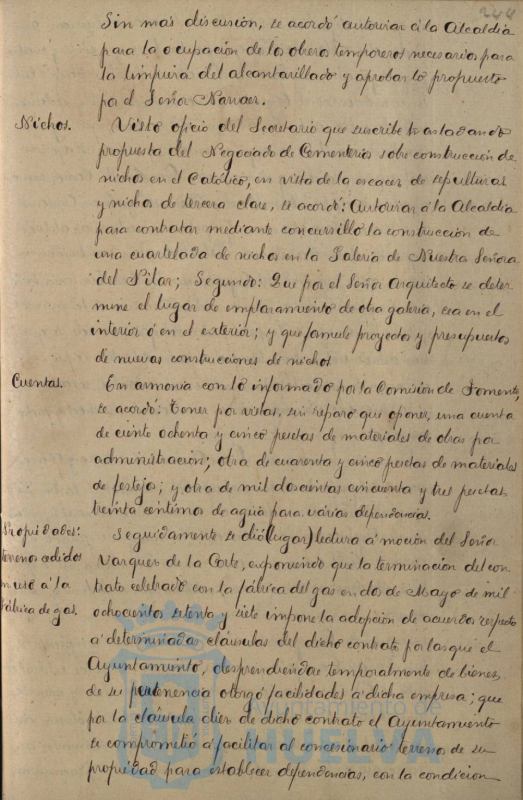 244
Sin más discusión, se acordó autorizar á la Alcaldía
para la ocupación de los obreros temporeros necesarios para
la limpieza del alcantarillado y aprobar lo propuesto
por el Señor Narvaez.
Nichos. Visto oficio del Secretario que suscribe trasladando
propuesta del Negociado de Cementerios sobre construcción de
nichos en el Católico, en vista de la escacez de sepulturas
y nichos de tercera clase, se acordó: Autorizar á la Alcaldía
para contratar mediante concursillo la construcción de
una cuartelada de nichos en la Galería de Nuestra Señora
del Pilar; Segundo: Que por el Señor Arquitecto se deter
mine el lugar de emplazamiento de otra galería, sea en el
interior ó en el exterior; y que formule proyectos y presupuestos
de nuevas construcciones de nichos.
Cuentas. En armonía con lo informado por la Comisión de Fomento,
se acordó: Tener por vistas, sin reparo que oponer, una cuenta
de ciento ochenta y cinco pesetas de materiales de obras por
administración; otra de cuarenta y cinco pesetas de materiales
de festejos; y otra de mil doscientas cincuenta y tres pesetas
treinta céntimos de agua para varias dependencias.
Propiedades: Seguidamente se dió (lugar) lectura á moción del Señor
terrenos cedidos Vazquez de la Corte, exponiendo que la terminación del con
en uso á la trato celebrado con la fábrica del gas en dos de Mayo de mil
fábrica de gas. ochocientos setenta y siete impone la adopción de acuerdos respecto
á determinadas cláusulas del dicho contrato por las que el
Ayuntamiento, desprendiéndose temporalmente de bienes
de su pertenencia otorgó facilidades á dicha empresa; que
por la cláusula diez de dicho contrato el Ayuntamiento
se comprometió á facilitar al concesionario terreno de su
propiedad para establecer dependencias, con la condición
Ayuntamiento de
HUELVA